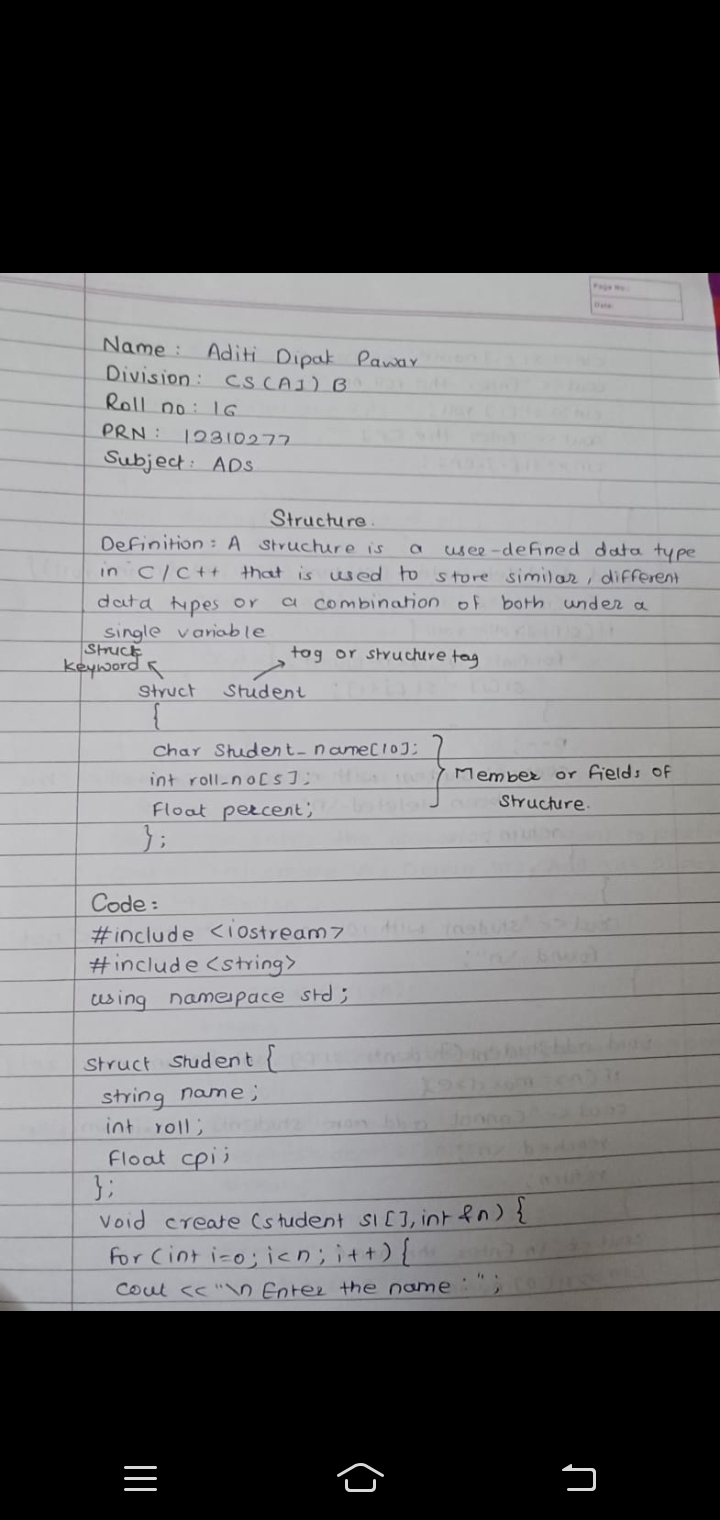 Page No.:
Date:
Name : Aditi Dipak Pawar
Division : CS (AI) B
Roll no : 16
PRN : 12310277
Subject : ADS
Structure.
Definition : A structure is a user-defined data type
in C/C++ that is used to store similar, different
data types or a combination of both under a
single variable
struct keyword
tag or structure tag
struct student
{
char student_name[10];
int roll_no[5];
float percent;
};
Member or fields of
structure.
Code :
#include <iostream>
#include <string>
using namespace std;
struct student {
string name;
int roll;
float cpi;
};
void create (student s1[], int &n) {
for (int i=0; i<n; i++) {
cout << "\n Enter the name : ";